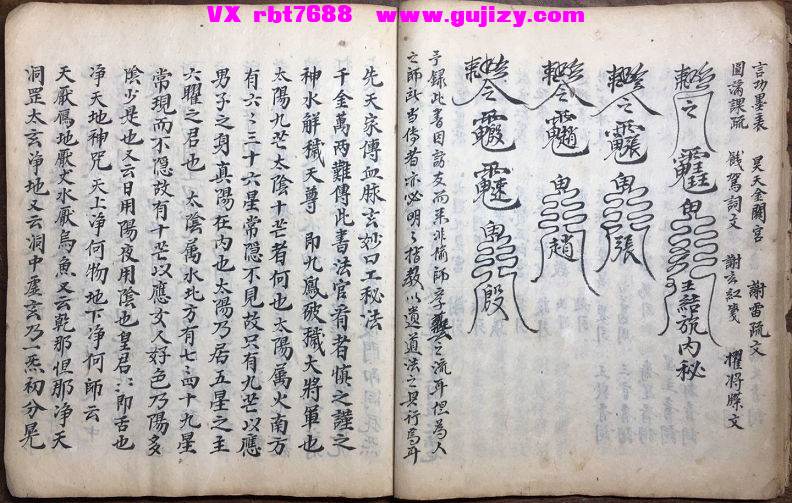 VX rbt7688 www.gujizy.com
言功墨表 昊天金闕宮 謝雷疏文
圓滿課疏 餞駕詞文 謝玄紅箋 擢将牒文
王結旅内秘
張
趙
殷
予録此書因訪友而来非偷師之流耳但為人
之師此當傳者亦必明之指教以道法之行焉耳
先天家傳血脉玄妙口工秘法
千金萬两難傳此書法官看者慎之謹之
神水解穢天尊 即九鳳破穢大將軍也
太陽九芒太陰十芒者何也太陽属火南方
有六六三十六星常隱不見故只有九芒以應
男子之身真陽在内也太陽乃居五星之主
六曜之君也 太陰属水北方有七七四十九星
常現而不隱故有十芒以應女人好色乃陽多
陰少是也又云日用陽夜用陰也皇君皇君即舌也
净天地神咒天上净何物地下净何師云
天厭鴈地厭犬水厭烏魚又云乾那怛那净天
洞罡太玄净地又云洞中虚玄乃一炁初分晃